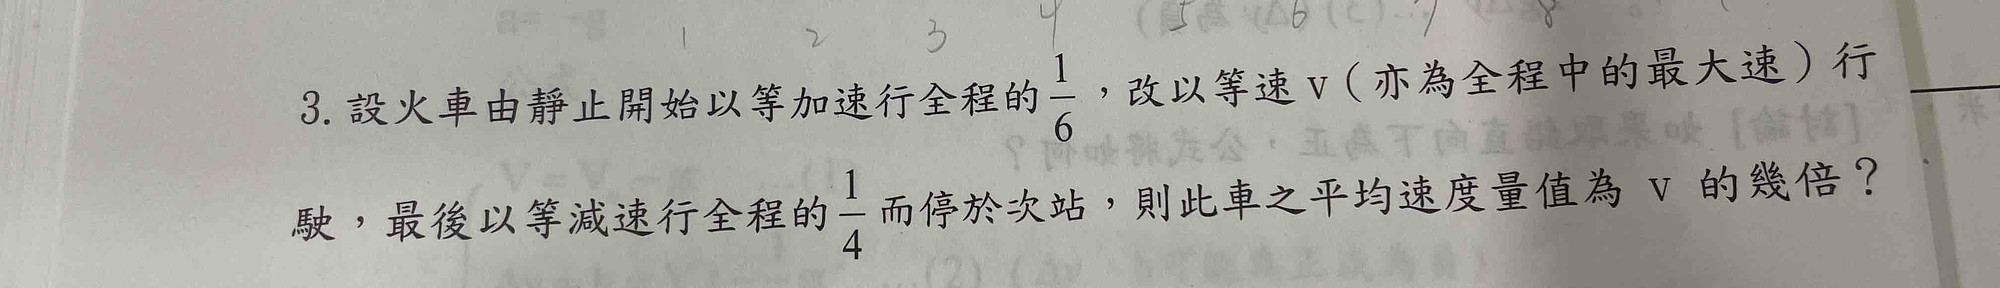 1 2 3 4 5 6 7 8
3. 設火車由靜止開始以等加速行全程的1/6，改以等速 v（亦為全程中的最大速）行
駛，最後以等減速行全程的1/4而停於次站，則此車之平均速度量值為 v 的幾倍？